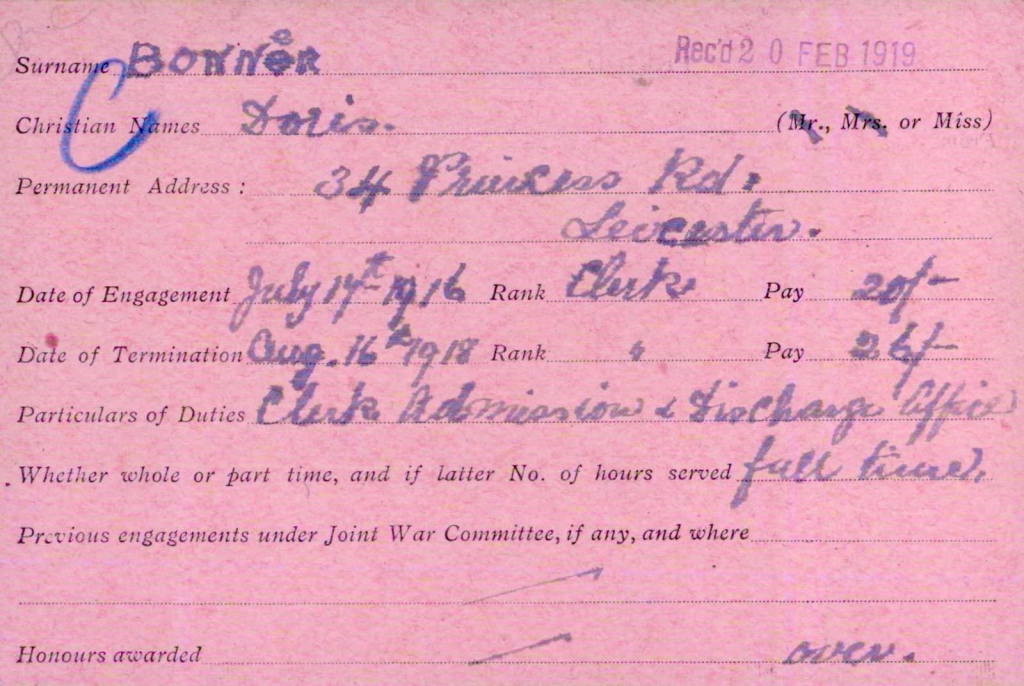 Surname BONNER
Rec'd 20 FEB 1919
Christian Names Doris. (Mr., Mrs. or Miss)
Permanent Address: 34 Princess Rd.
Leicester.
Date of Engagement July 17th 1916 Rank Clerk Pay 20/-
Date of Termination Aug. 16th 1918 Rank " Pay 26/-
Particulars of Duties Clerk Admission & Discharge Office
Whether whole or part time, and if latter No. of hours served full time.
Previous engagements under Joint War Committee, if any, and where
Honours awarded over.